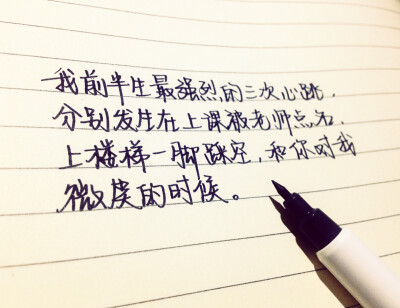 我前半生最强烈的三次心跳，
分别发生在上课被老师点名，
上楼梯一脚踩空，和你对我
微笑的时候。